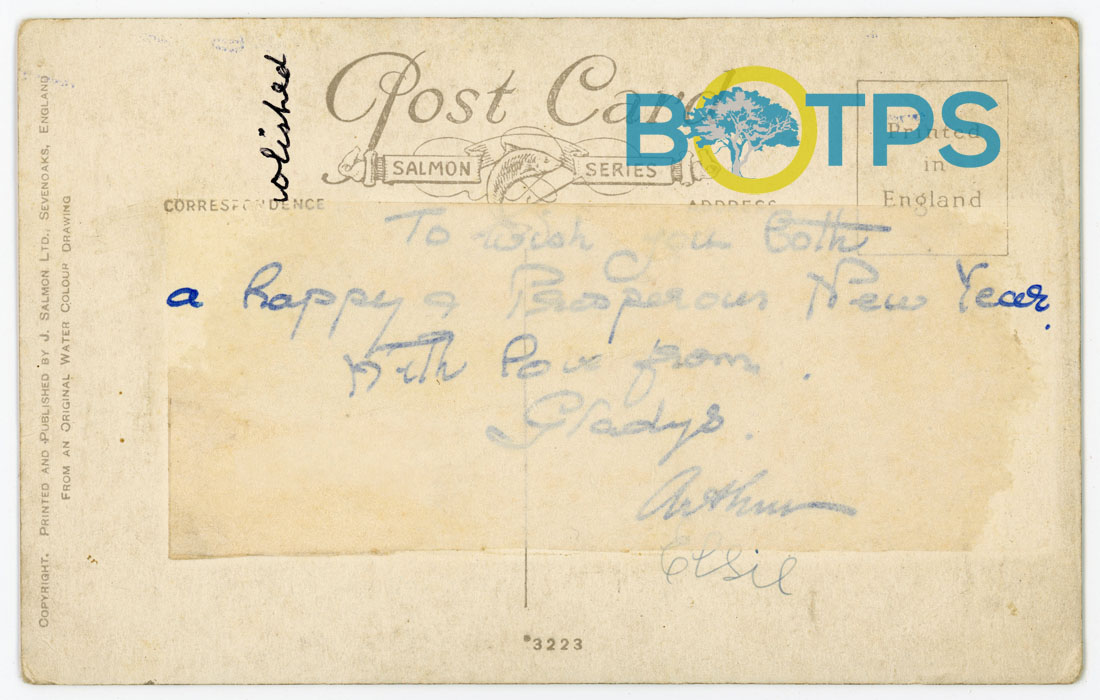 COPYRIGHT. PRINTED AND PUBLISHED BY J. SALMON LTD., SEVENOAKS, ENGLAND
FROM AN ORIGINAL WATER COLOUR DRAWING
wished
Post Card
BOTPS
SALMON SERIES
Printed
in
England
CORRESPONDENCE
ADDRESS
To wish you both
a happy & Prosperous New Year.
With love from.
Gladys.
Arthur
Elsie
*3223